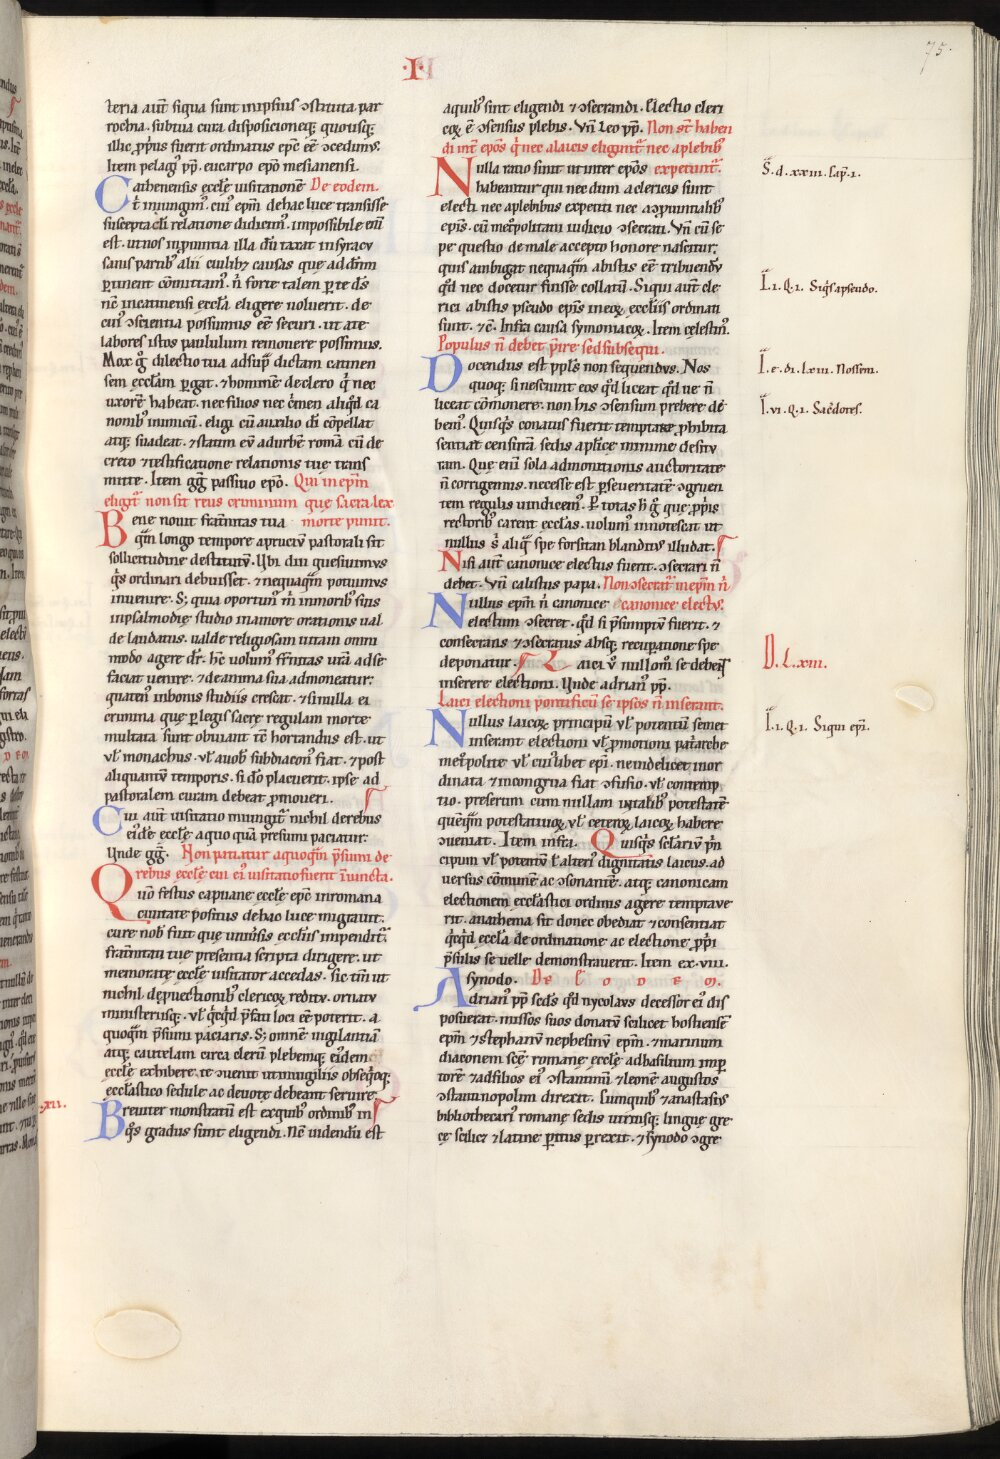 75.
·I·
teria aut̄ siqua sunt inipsius ↄstituta par
rochia. subtua cura disposicioneq; quousq;
illic ꝓprius fuerit ordinatus ep̄c eē ↄcedimꝰ.
Item pelagꝰ pp̄. eucarpo ep̄o mesianensi.
Cathenensis eccl̄e uisitationē De eodem.
t̄ iniungimꝰ. cuiꝰ ep̄m dehac luce transisse
suscepta cl̄i relatione didicimꝰ. impossibile eni
est. ut nos inpuntia illa dū taxat insyracu
sanis partibꝰ alii ciuilibꝫ causas que ad dr̄im
ꝑtinent comittamꝰ. n̄ forte talem ꝑte dꝰs
nē incatinensi eccl̄a eligere uoluerit. de
cuiꝰ ↄscientia possumus eē securi. ut ate
labores istos paululum remouere possimus.
Mox g̊ dilectio tua adsup̄ dictam catinen
sem eccl̄am ꝑgat. ⁊ hominē declero q̊ nec
uxorē habeat. nec filios nec c̊men aliq̊d ca
nonibꝰ inimicū. eligi cū auxilio dī cōpellat
atq; suadeat. ⁊ statim eū adurbē romā cū de
creto ⁊ testificatione relationis tuę trans
mitte. Item gg̊ passiuo ep̄o. Qui in ep̄m
eligit̄ non sit reus criminum que sacra lex
Bene nouit fr̄nitas tua morte punit.
qm̄ longo tempore apruciū pastorali sit
sollicitudine destitutū. Ubi diu quesiuimus
q̊s ordinari debuisset. ⁊ nequaq̄m potuimus
inuenire. S; quia oportunꝰ m̄ inmoribꝰ suis
inpsalmodie studio inamore orationis ual
de laudatus. ualde religiosam uitam omni
modo agere dr̄. hc̄ uolumꝰ fr̄nitas ur̄a ad se
faciat uenire. ⁊ deanima sua admoneatur:
quatenꝰ inbonis studiis crescat. ⁊ sinulla ei
crimina que ꝑlegis sacrę regulam morte
multata sunt obuiant tē hortandus est. ut
ul̄ monachus. ul̄ auob̄ subdiaconꝰ fiat. ⁊ post
aliquantū temporis. si dō placuerit. ipse ad
pastoralem curam debeat ꝓmoueri.
Cui aut̄ uisitatio iniungit̄ nichil derebus
eide eccl̄e aquo quā presumi paciatur:
Unde gg̊. Non patiatur aquoq̄m p̄sumi de
rebus eccl̄e cui eiꝰ uisitatio fuerit iniuncta.
Quō festus capuane eccl̄e ep̄c inromana
ciuitate positus dehac luce migrauit.
cure nob̄ fuit que uniuꝰsis eccl̄iis impendit̄.
fr̄nitati tue presentia scripta dirigere. ut
memoratę eccl̄e uisitator accedas. sic tn̄ ut
nichil deꝓuectionibꝰ clericoꝝ redituꝰ. ornatu
ministeriisq;. ul̄ q̊cq̊d p̄fati loci eē poterit. a
quoq̄m p̄sumi paciaris. S; omnē uigilantiā
atq; cautelam circa clerū plebemq; eiꝰdem
eccl̄e exhibere te ↄuenit ut inuigiliis obseq̊oq;
eccl̄astico sedule ac deuote debeant seruire.
xii.
Breuiter monstratū est exquibꝰ ordinibꝰ in
q̊s gradus sunt eligendi. Nē uidendū est
aquibꝰ sint eligendi ⁊ ↄsecrandi. Electio cleri
coꝝ ē ↄsensus plebis. Vn̄ Leo pp̄. Non st̄ haben
di int̄ ep̄os q̊ nec alaicis eligunt̄ nec aplebibꝰ
Nulla ratio sinit ut inter ep̄os expetunt̄.
habeantur qui nec dum aclericis sunt
electi nec aplebibus expetiti nec aↄpuintialibꝰ
ep̄is. cū met̊politani iudicio ↄsecrati. Vn̄ cū se
pe questio demale accepto honore nascitur:
quis ambigat nequaq̄m abistis eē tribuendū
q̊d nec docetur fuisse collatū. Siqui aut̄ cle
rici abistis pseudo ep̄is ineoꝝ eccl̄iis ordinati
sunt. ⁊ c̄. Infra causa symoniacoꝝ. Item celestinꝰ.
Populus n̄ debet p̄ire sed subsequi.
Docendus est ppl̄s non sequendus. Nos
quoq; si nesciunt eos q̊d liceat q̊d ue n̄
liceat cōmonere. non his ↄsensum prebere de
bemꝰ. Quisq̊s conatus fuerit temptare ꝓhibita
sentiat censurā sedis apl̄ice minime defutu
ram. Que eniꝰ sola admonitionis auctoritate
n̄ corrigimus. necesse est ꝑseueritatē ↄgruen
tem regulis uindicemꝰ. Ꝑ totas h̊ g̊ que ꝓpriis
rectoribꝰ carent eccl̄as. uolumꝰ innotescat ut
nullus s̄ aliq̊ spe forsitan blanditus illudat.
Nisi aut̄ canonice electus fuerit. ↄsecrari n̄
debet. Vn̄ calistus papa. Non ↄsecrat̄ inep̄m n̄
Nullus ep̄m n̄ canonice canonice electꝰ.
electum ↄsecret. q̊d si p̄sumptū fuerit. ⁊
consecrans ⁊ ↄsecratus absq; recupatione spe
deponatur. Laici ū nullomꝰ se debent
inserere electioni. Unde adrianꝰ pp̄.
Laici electioni pontificū se ipsos n̄ inserant.
Nullus laicoꝝ principū ul̄ potentū semet
inserant electioni ul̄ ꝓmotioni patriarche
met̊polite ul̄ cuiꝰlibet ep̄i. ne indelicet inor
dinata ⁊ incongrua fiat ↄfusio. ul̄ contemp
tio. presertim cum nullam intalibꝰ potestatē
quēq̄m potestatiuoꝝ ul̄ ceteroꝝ laicoꝝ habere
ↄueniat. Item infra. Quisq̊s sc̄lariū p̄n
cipum ul̄ potentū ul̄ alteriꝰ dignitatis laicus. ad
uersus cōmunē ac ↄsonantē. atq; canonicam
electionem eccl̄astici ordinis agere temptaue
rit. anathema sit donec obediat ⁊ consentiat
q̊cq̊d eccl̄a de ordinatione ac electione ꝓprii
p̄sulis se uelle demonstrauerit. Item ex. viii.
synodo. De eodem.
Adrianꝰ pp̄ scd̄s q̊d nycolaus decessor eiꝰ dis
posuerat. missos suos donatū scilicet hostiensē
ep̄m ⁊ stephanū nephesinū ep̄m. ⁊ marinum
diaconem sc̄ę romanę eccl̄ę adbasilium imp̄
torē ⁊ adfilios eiꝰ ↄstantinū ⁊ leonē augustos
ↄstantinopolim direxit. Cumquibꝰ ⁊ anastasiꝰ
bibliothecariꝰ romanę sedis utriusq; linguę gre
cę scilicꝫ ⁊ latinę ꝑitus ꝑrexit. ⁊ synodo ↄgre
S. d. xxiii. Cap. i.
I. i. Q. i. Siq̊s apseudo.
I. e. di. lxiii. Nossem.
I. vi. Q. i. Sac̄dotes.
D. L. xiii.
I. i. Q. i. Siqui ep̄i.